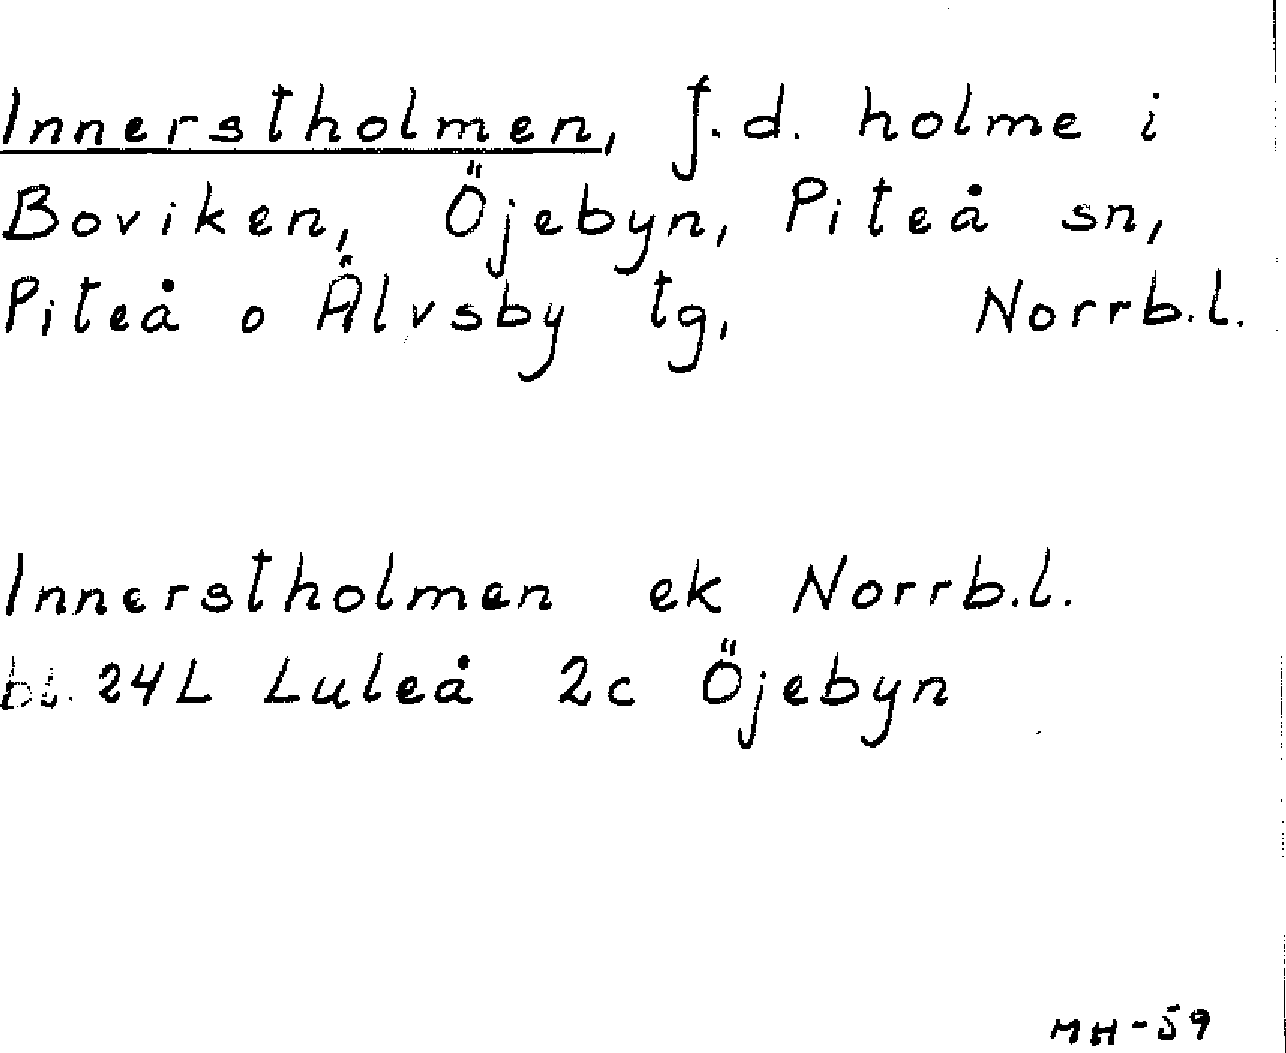 Innerstholmen, f.d. holme i
Boviken, Öjebyn, Piteå sn,
Piteå o Älvsby tg, Norrb.l.
Innerstholmen ek Norrb.l.
bl. 24L Luleå 2c Öjebyn
MH-59